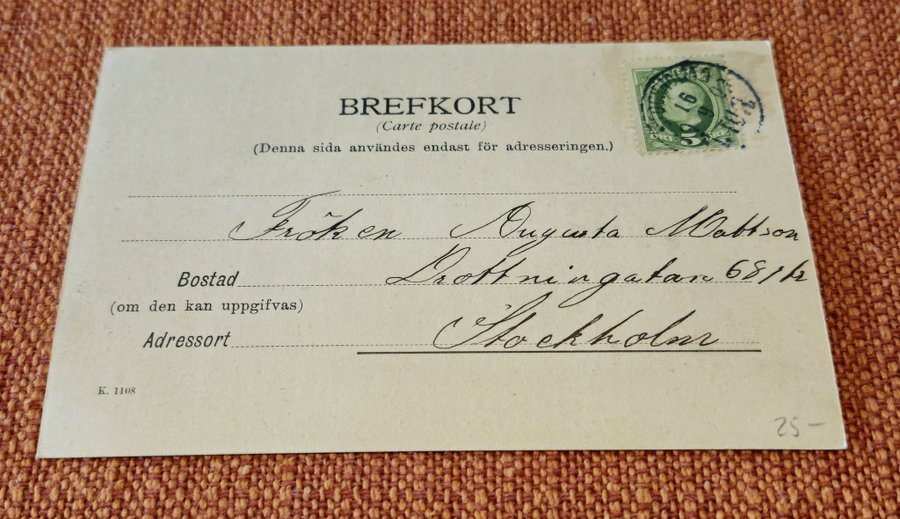 BREFKORT
(Carte postale)
(Denna sida användes endast för adresseringen.)
Fröken Augusta Mattson
Bostad Drottningatan 68 1 tr
(om den kan uppgifvas)
Adressort Stockholm
K. 1108
25-